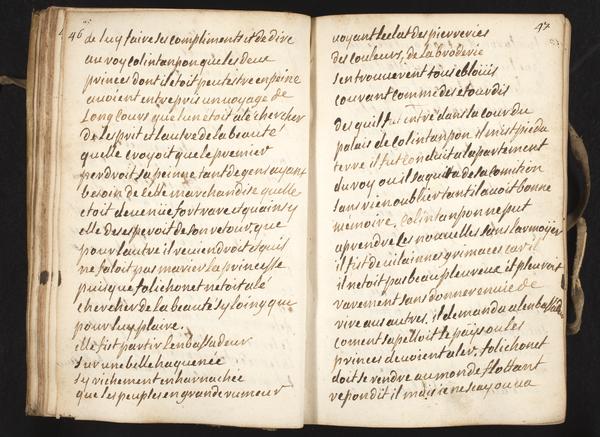 46
de luy faire ses compliments et de dire
au roy colintanpon que les deux
princes dont il etoit peutestre en peine
avoient entrepris un voyage de
long cours que l'un etoit alé chercher
de l'esprit et l'autre de la beauté
quelle croyoit que le premier
perdroit sa peine tant de gens ayant
besoin de cette marchandise quelle
etoit devenüe fort rare et quainsy
elle desesperoit de son retour, que
pour lautre il reviendroit et quil
ne faloit pas marier la princesse
puisque folichonet netoit alé
chercher de la beauté sy loing que
pour luy plaire.
elle fist partir lenbassadeur
sur une belle haquenée
sy richement enharnachée
que les peuples en grande rumeur
47
voyant leclat des pierreries
des couleurs, de la broderie
sen trouverent tous eblouis
couvant comme des etourdis
des quil fut entré dans la cour du
palais de colintanpon il mist pied a
terre il fut conduit a lapartement
du roy ou il saquita de sa comition
sans rien oublier tant il avoit bonne
mémoire, colintanpon ne put
aprendre les nouvelles sans larmoyer
il fist de vilainnes grimaces car il
il netoit pas beau pleureux et pleuroit
rarement sans donner envie de
rire aux autres, il demanda a lenbassadeur
coment sapelloit le païs ou les
princes devoient aler, folichonet
doit se rendre au monde flotant
repondit il mais je ne scay ou va